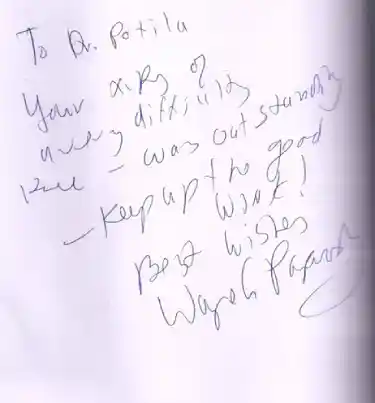 To Dr. Potila
Your x.Ray of
a very difficult
- was outstanding
- Keep up the good
work!
Best Wishes